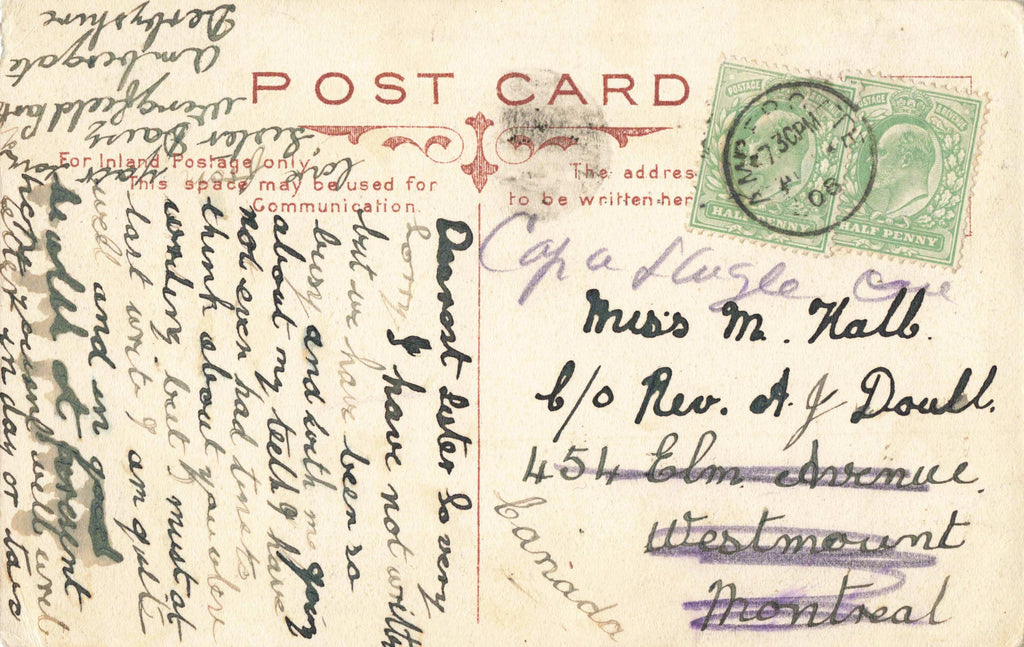 POST CARD
For Inland Postage only
This space may be used for
Communication.
The address
to be written her
POSTAGE
HALF PENNY
HALF PENNY
730PM
08
Cap a l'Aigle
Miss M. Hall.
C/o Rev. A. J Doull.
454 Elm Avenue.
Westmount
Montreal
Canada
Dearest Sister So very
Sorry I have not written
but we have been so
busy and with me going
about my teeth I have
not even had time to
think about you where
working. but I must at
last write I am quite
well and in good
health at present
hope you are well will write
letter in day or two
love from
Sister Daisy
Wingfield Park
Ambergate
Derbyshire